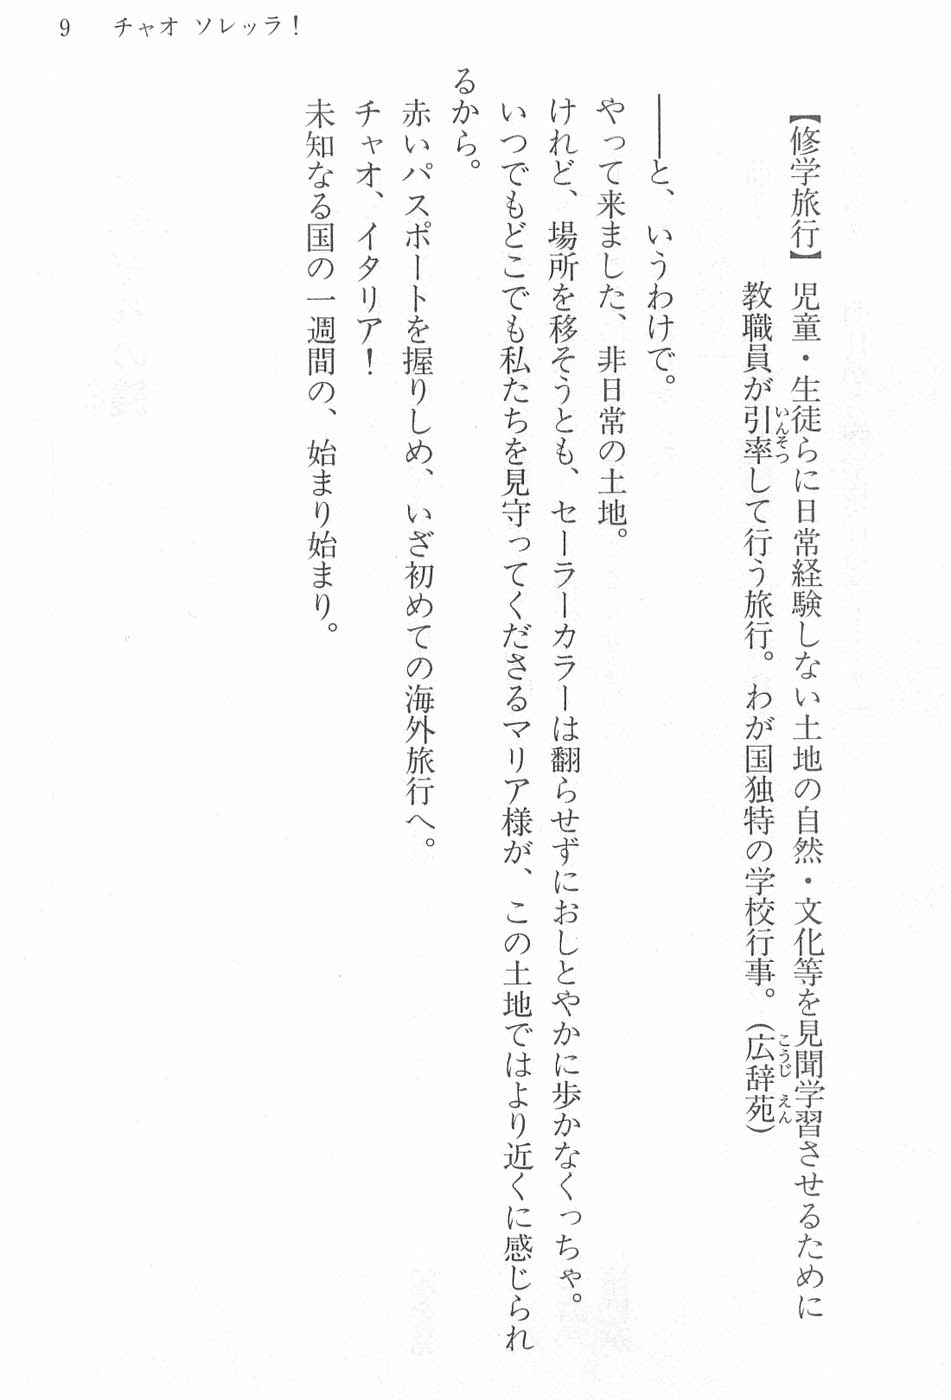 9 チャオ ソレッラ！
【修学旅行】 児童・生徒らに日常経験しない土地の自然・文化等を見聞学習させるために
教職員が引率して行う旅行。わが国独特の学校行事。（広辞苑）
いんそつ
こうじ えん
――と、いうわけで。
やって来ました、非日常の土地。
けれど、場所を移そうとも、セーラーカラーは翻らせずにおしとやかに歩かなくっちゃ。
いつでもどこでも私たちを見守ってくださるマリア様が、この土地ではより近くに感じられ
るから。
赤いパスポートを握りしめ、いざ初めての海外旅行へ。
チャオ、イタリア！
未知なる国の一週間の、始まり始まり。